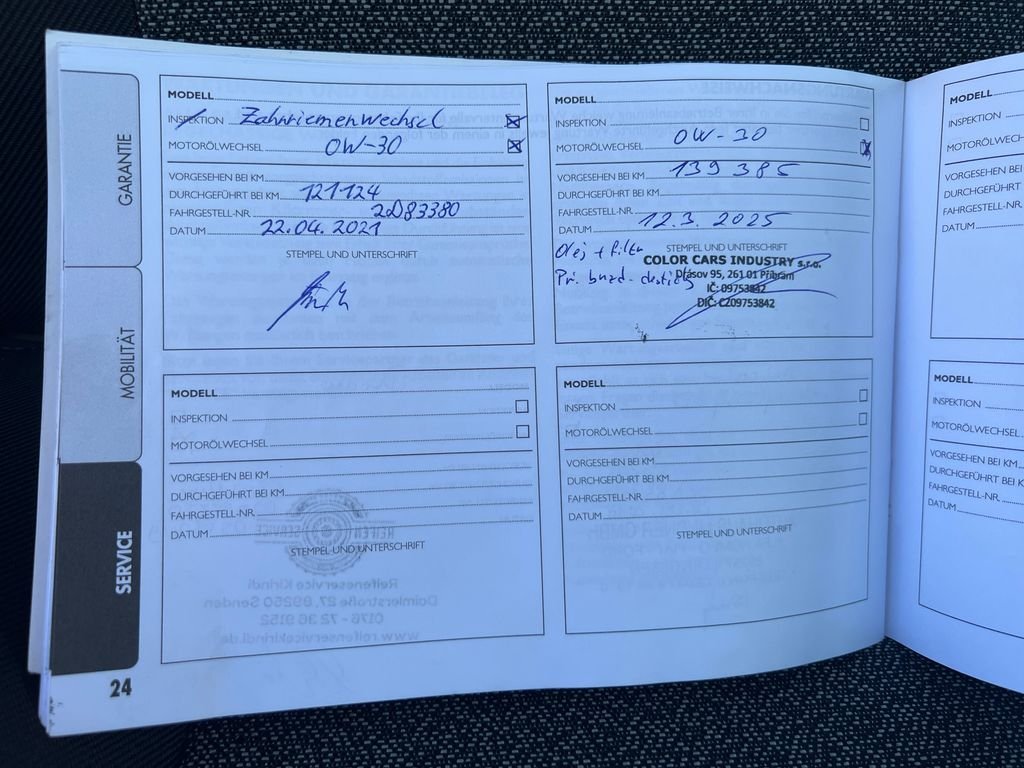 GARANTIE
MOBILITÄT
SERVICE
24
MODELL
INSPEKTION Zahnriemenwechsel
MOTORÖLWECHSEL 0W-30
VORGESEHEN BEI KM
DURCHGEFÜHRT BEI KM 121124
FAHRGESTELL-NR. 2D83380
DATUM 22.04.2021
STEMPEL UND UNTERSCHRIFT
MODELL
INSPEKTION
MOTORÖLWECHSEL 0W-30
VORGESEHEN BEI KM 139 385
DURCHGEFÜHRT BEI KM
FAHRGESTELL-NR.
DATUM 12.3. 2025
STEMPEL UND UNTERSCHRIFT
Olej + filtr
Př. brzd. destičky
COLOR CARS INDUSTRY s.r.o.
Drásov 95, 261 01 Příbram
IČ: 09753842
DIČ: CZ09753842
MODELL
INSPEKTION
MOTORÖLWECHSEL
VORGESEHEN BEI KM
DURCHGEFÜHRT BEI KM
FAHRGESTELL-NR.
DATUM
STEMPEL UND UNTERSCHRIFT
REIFEN SERVICE
Reifenservice Kirindi
Daimlerstraße 27, 89250 Senden
0176 - 72 36 9152
www.reifenservicekirindi.de
MODELL
INSPEKTION
MOTORÖLWECHSEL
VORGESEHEN BEI KM
DURCHGEFÜHRT BEI KM
FAHRGESTELL-NR.
DATUM
STEMPEL UND UNTERSCHRIFT
MODELL
INSPEKTION
MOTORÖLWECHS
VORGESEHEN BEI K
DURCHGEFÜHRT
FAHRGESTELL-NR
DATUM
MODELL
INSPEKTION
MOTORÖLWECHSEL
VORGESEHEN BEI KM
DURCHGEFÜHRT BEI K
FAHRGESTELL-NR.
DATUM